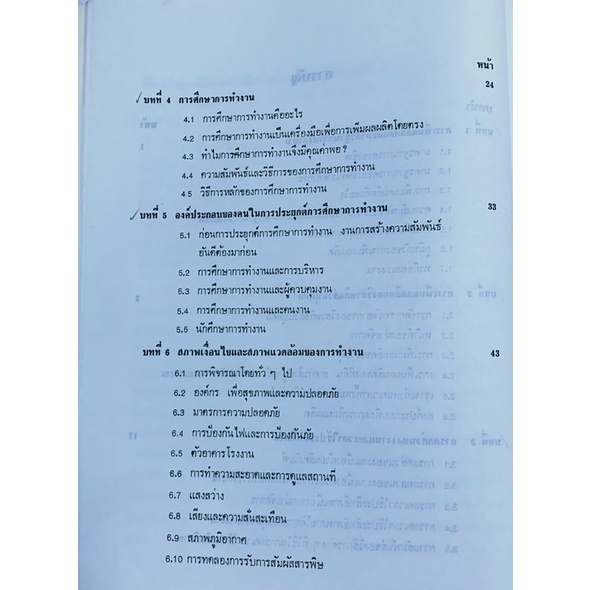 หน้า
24
บทที่ 4 การศึกษาการทำงาน
4.1 การศึกษาการทำงานคืออะไร
4.2 การศึกษาการทำงานเป็นเครื่องมือเพื่อการเพิ่มผลผลิตโดยตรง
4.3 ทำไมการศึกษาการทำงานจึงมีคุณค่าพอ?
4.4 ความสัมพันธ์และวิธีการของการศึกษาการทำงาน
4.5 วิธีการหลักของการศึกษาการทำงาน
บทที่ 5 องค์ประกอบของคนในการประยุกต์การศึกษาการทำงาน 33
5.1 ก่อนการประยุกต์การศึกษาการทำงาน งานการสร้างความสัมพันธ์
อันดีต้องมาก่อน
5.2 การศึกษาการทำงานและการบริหาร
5.3 การศึกษาการทำงานและผู้ควบคุมงาน
5.4 การศึกษาการทำงานและคนงาน
5.5 นักศึกษาการทำงาน
บทที่ 6 สภาพเงื่อนไขและสภาพแวดล้อมของการทำงาน 43
6.1 การพิจารณาโดยทั่ว ๆ ไป
6.2 องค์กร เพื่อสุขภาพและความปลอดภัย
6.3 มาตรการความปลอดภัย
6.4 การป้องกันไฟและการป้องกันภัย
6.5 ตัวอาคารโรงงาน
6.6 การทำความสะอาดและการดูแลสถานที่
6.7 แสงสว่าง
6.8 เสียงและความสั่นสะเทือน
6.9 สภาพภูมิอากาศ
6.10 การทดลองการรับการสัมผัสสารพิษ